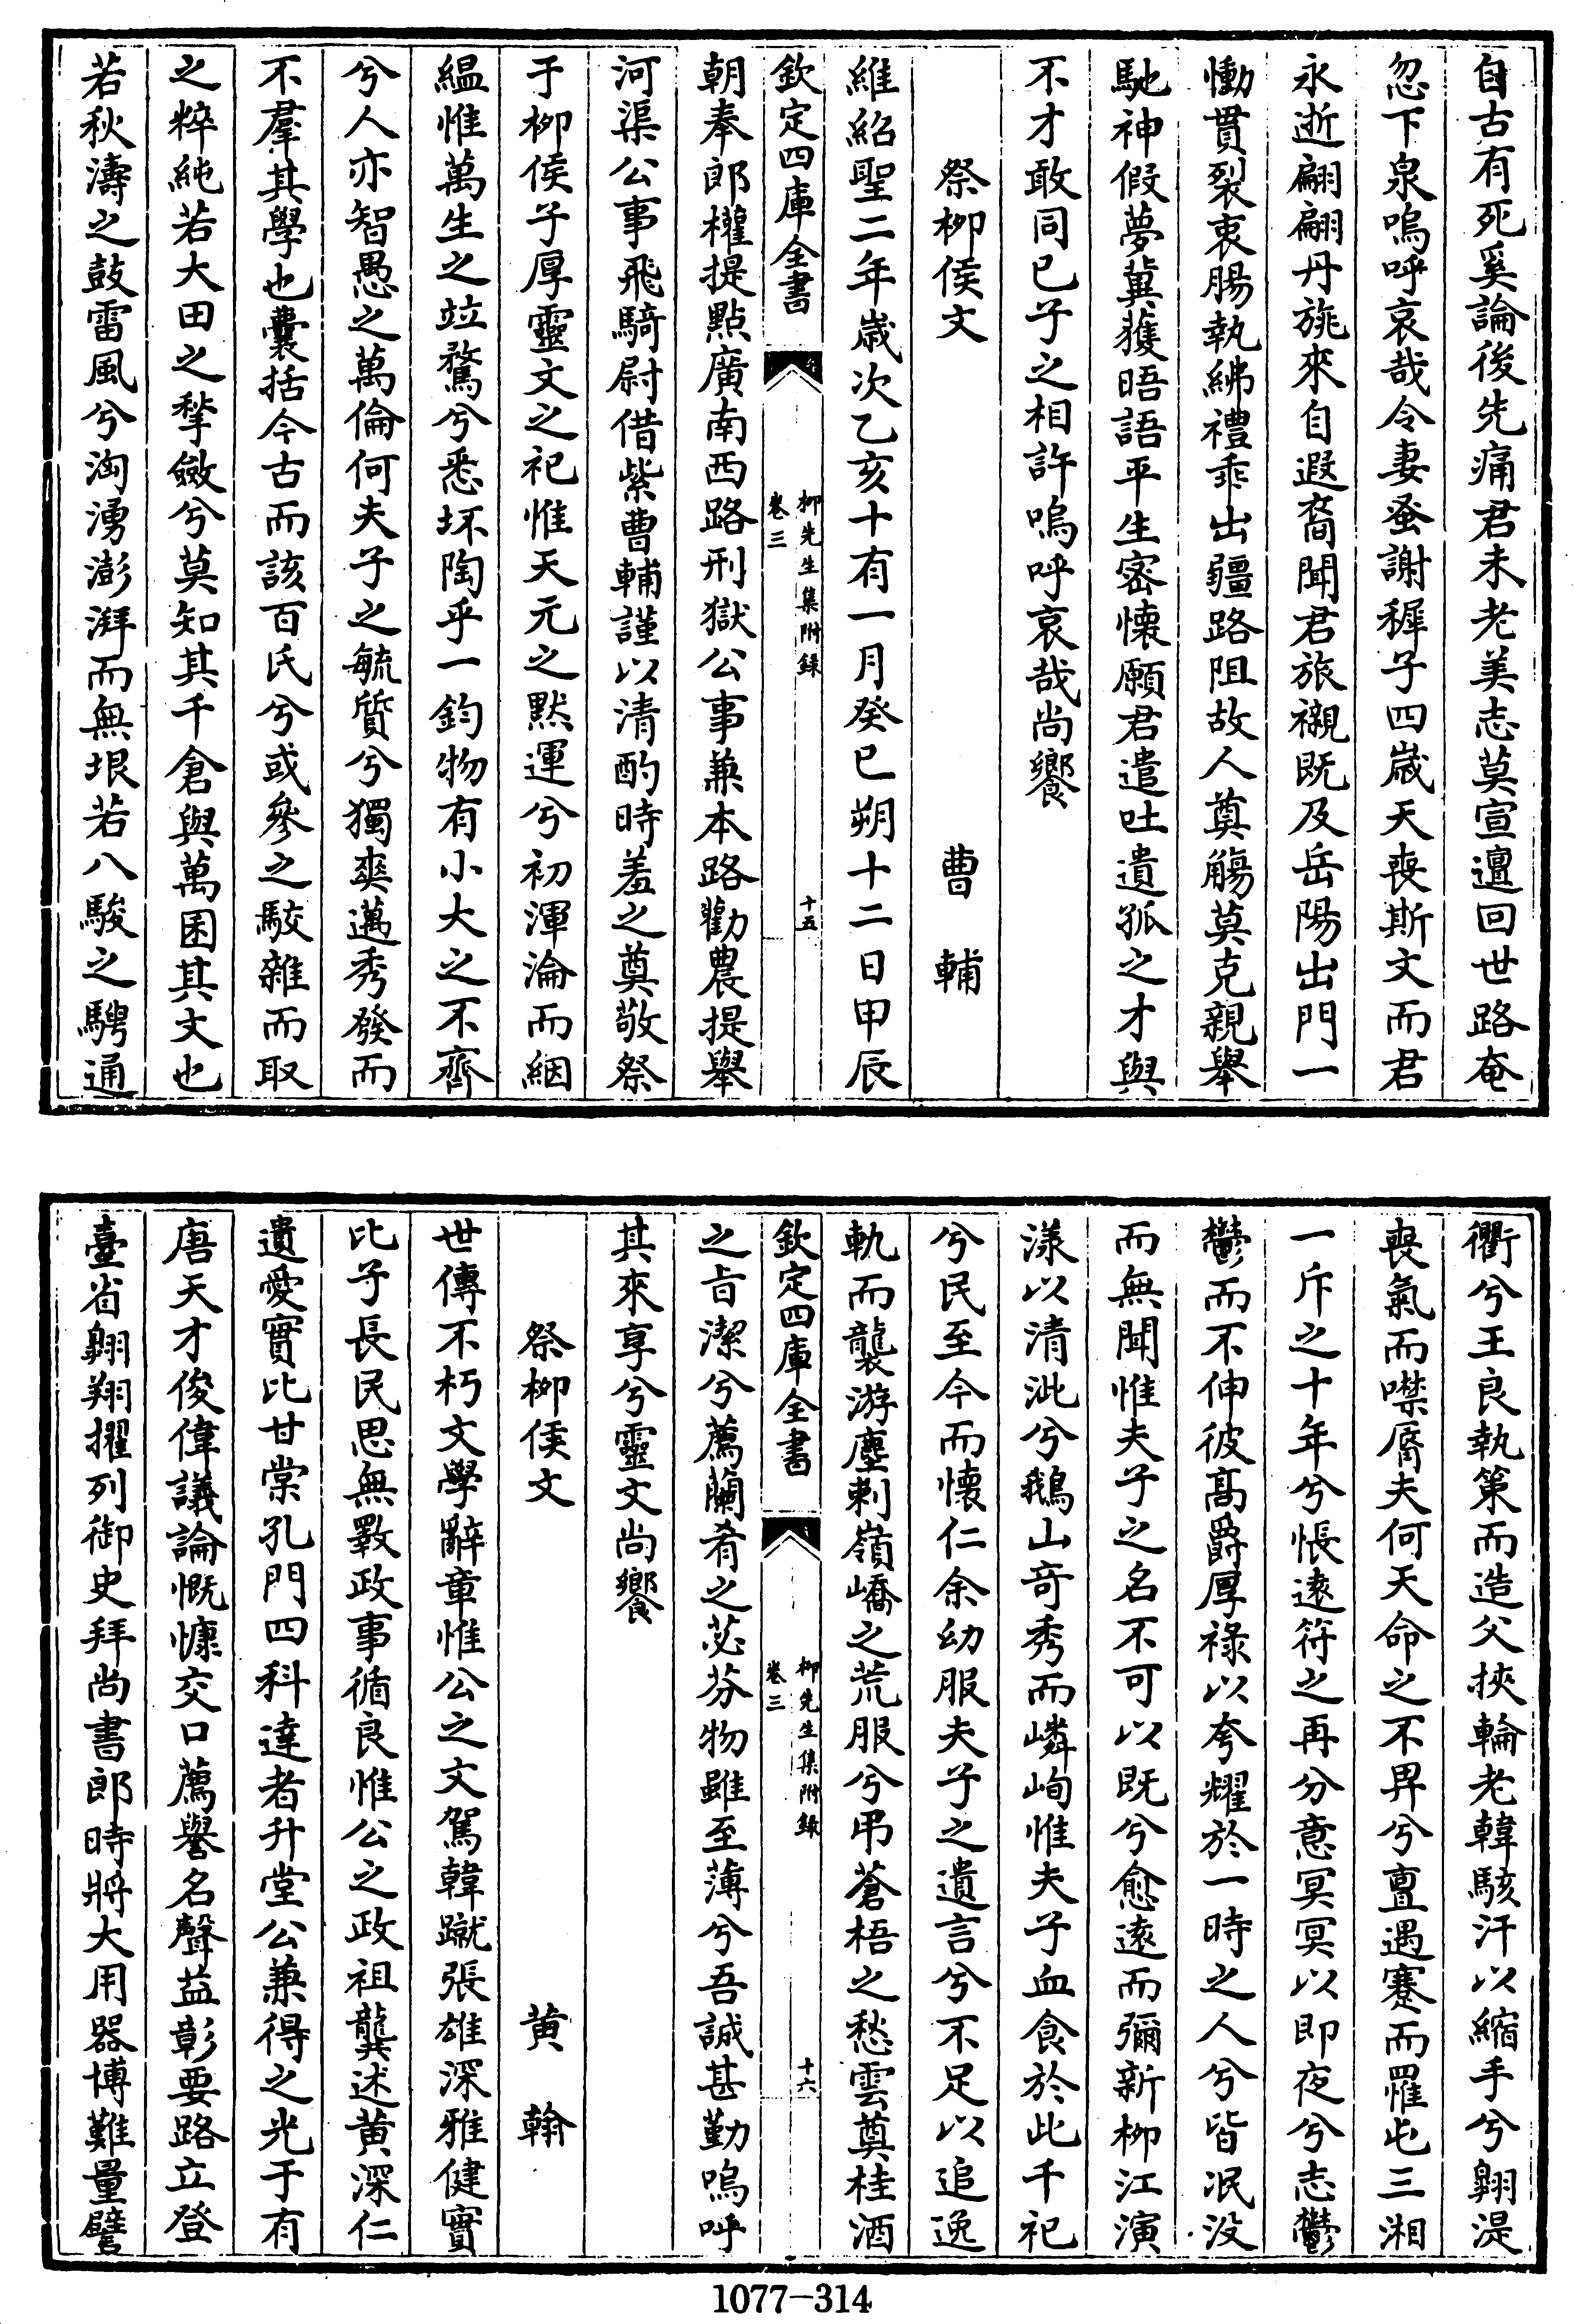 自古有死奚論後先痛君未老美志莫宣邅回世路奄
忽下泉嗚呼哀哉令妻蚤謝穉子四歲天喪斯文而君
永逝翩翩丹旐來自遐裔聞君旅櫬既及岳陽出門一
慟貫裂衷腸執紼禮乖出疆路阻故人奠觴莫克親舉
馳神假夢冀獲晤語平生密懷願君遣吐遺孤之才與
不才敢同己子之相許嗚呼哀哉尚饗
祭柳侯文 曹輔
維紹聖二年歲次乙亥十有一月癸巳朔十二日甲辰
欽定四庫全書 柳先生集附錄 卷三 十五
朝奉郎權提點廣南西路刑獄公事兼本路勸農提舉
河渠公事飛騎尉借紫曹輔謹以清酌時羞之奠敬祭
于柳侯子厚靈文之祀惟天元之默運兮初渾淪而絪
縕惟萬生之竝騖兮悉坏陶乎一鈞物有小大之不齊
兮人亦智愚之萬倫何夫子之毓質兮獨爽邁秀發而
不羣其學也囊括今古而該百氏兮或參之駁雜而取
之粹純若大田之揫斂兮莫知其千倉與萬囷其文也
若秋濤之鼓雷風兮洶湧澎湃而無垠若八駿之騁通
衢兮王良執策而造父挾輪老韓駭汗以縮手兮翱湜
喪氣而噤脣夫何天命之不畀兮亶遇蹇而罹屯三湘
一斥之十年兮悵遠符之再分意冥冥以即夜兮志鬱
鬱而不伸彼高爵厚祿以夸耀於一時之人兮皆泯没
而無聞惟夫子之名不可以既兮愈遠而彌新柳江演
漾以清泚兮鵝山竒秀而嶙峋惟夫子血食於此千祀
兮民至今而懷仁余幼服夫子之遺言兮不足以追逸
軌而襲游塵剌嶺嶠之荒服兮弔蒼梧之愁雲奠桂酒
欽定四庫全書 柳先生集附錄 卷三 十六
之旨潔兮薦蘭肴之苾芬物雖至薄兮吾誠甚勤嗚呼
其來享兮靈文尚饗
祭柳侯文 黄翰
世傳不朽文學辭章惟公之文駕韓蹴張雄深雅健實
比子長民思無斁政事循良惟公之政祖龔述黄深仁
遺愛實比甘棠孔門四科達者升堂公兼得之光于有
唐天才俊偉議論慨慷交口薦譽名聲益彰要路立登
臺省翱翔擢列御史拜尚書郎時將大用器博難量譬
1077-314